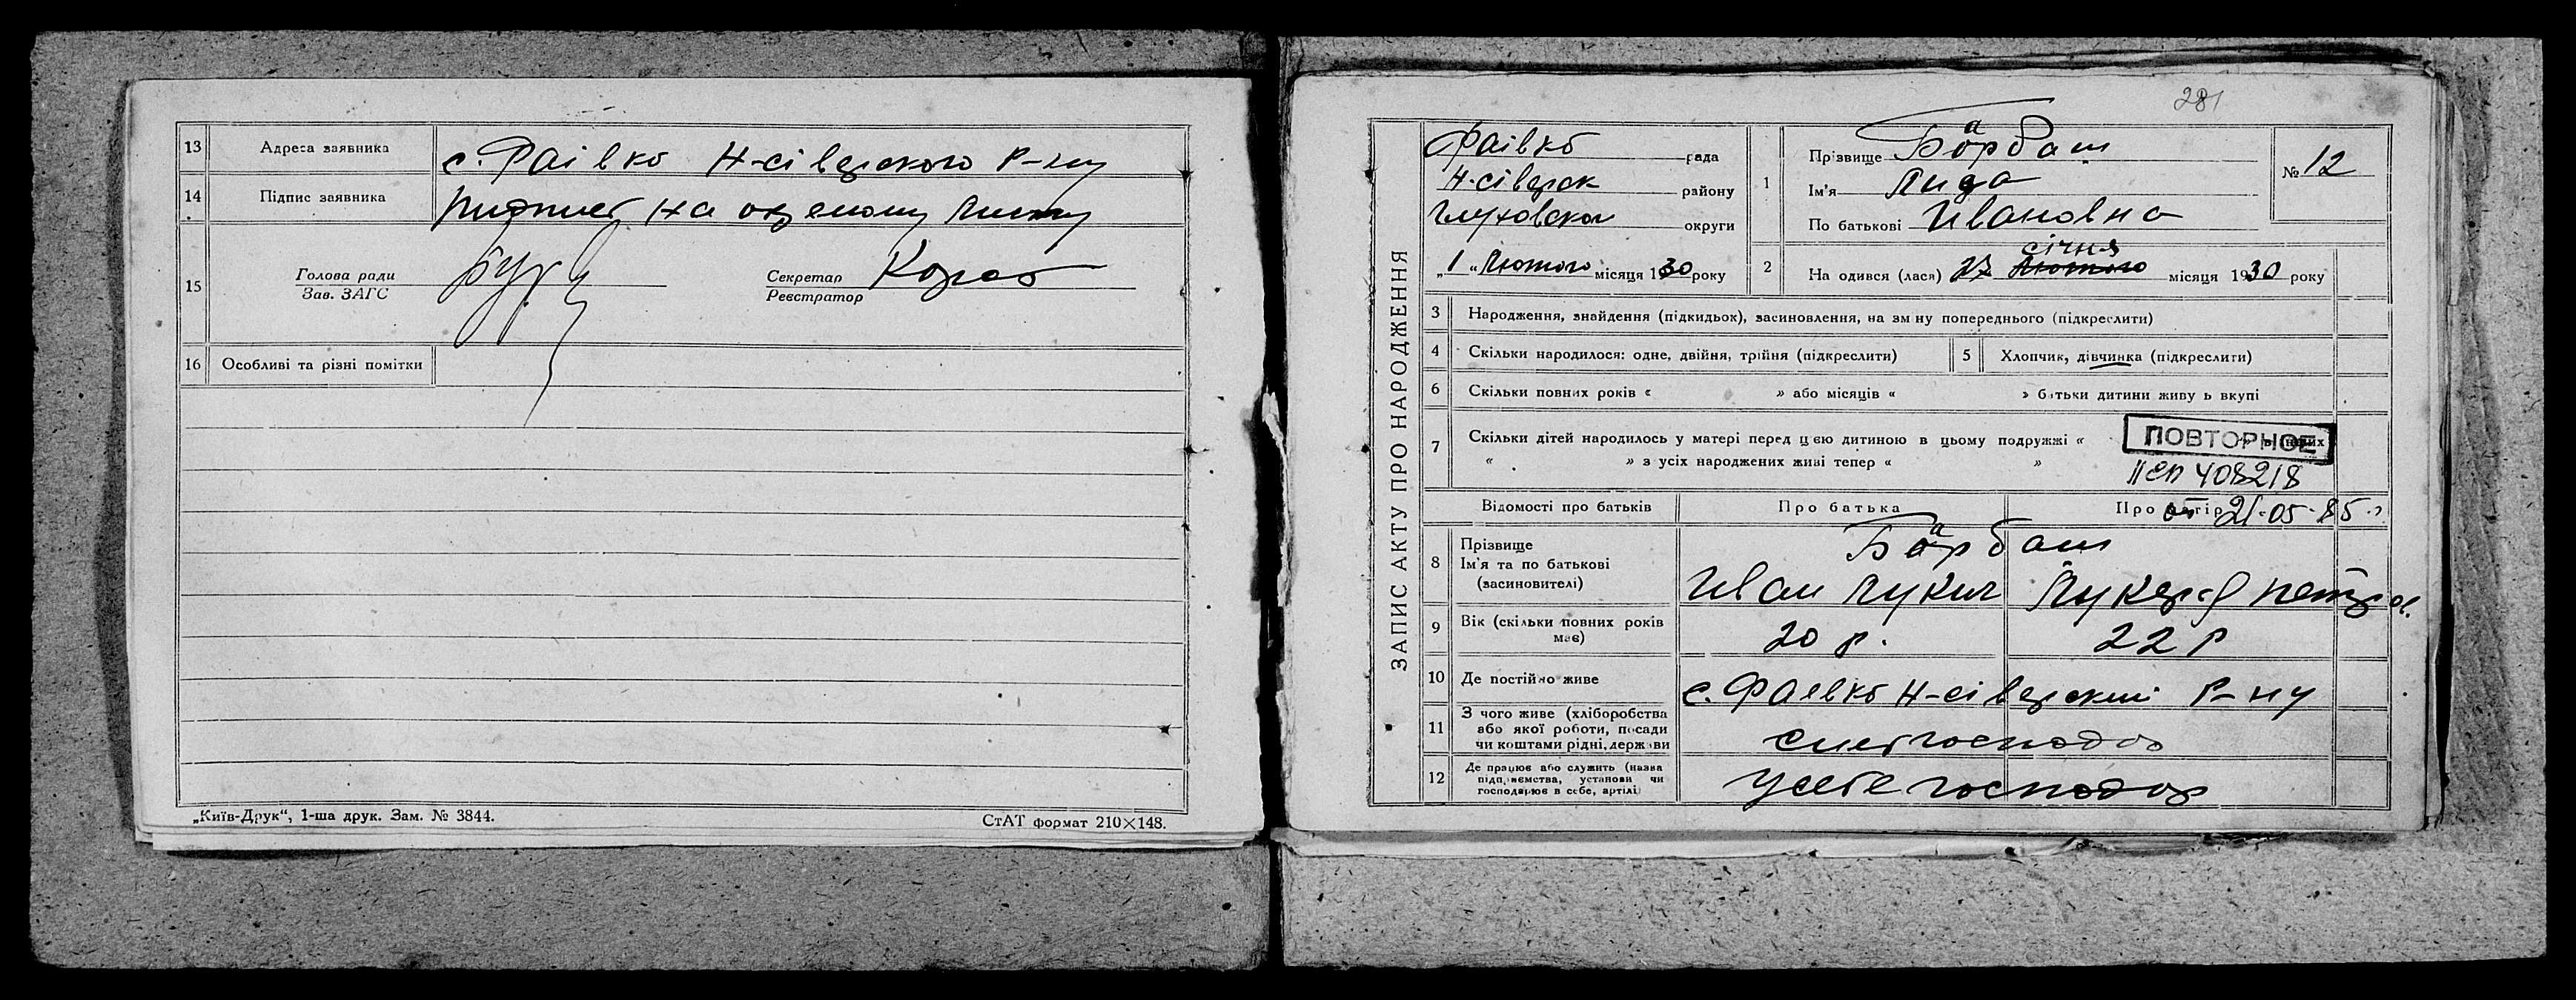 13 Адреса заявника с. Фаівка Н-сіверского Р-ну
14 Підпис заявника на окремому листу
15 Голова ради
Зав. ЗАГС
Секретар
Реєстратор
16 Особливі та різні помітки
„Київ-Друк“, 1-ша друк. Зам. № 3844.
СтАТ формат 210×148.
281
ЗАПИС АКТУ ПРО НАРОДЖЕННЯ
Фаівка рада
Н-сіверск району
Глуховскои округи
„1„ Лютого місяця 1930 року
1 Прізвище Барбаш
Ім'я Лида
По батькові Ивановна
№ 12
січня
2 На одився (лася) 27 Лютого місяця 1930 року
3 Народження, знайдення (підкидьох), засиновлення, на зм ну попереднього (підкреслити)
4 Скільки народилося: одне, двійня, трійня (підкреслити)
5 Хлопчик, дівчинка (підкреслити)
6 Скільки повних років « » або місяців « » батьки дитини живу ь вкупі
7 Скільки дітей народилось у матері перед цією дитиною в цьому подружжі «
« » з усіх народжених живі тепер « »
ПОВТОРНОЕ
408218
от 21-05-85 г
Відомості про батьків Про батька Про матір
8 Прізвище
Ім'я та по батькові
(засиновителі)
Барбаш
Иван Лукич Лукеря Петров.
9 Вік (скільки повних років має) 20 р. 22 р
10 Де постійно живе с. Фаевка Н-сіверский Р-ну
11 З чого живе (хліборобства
або якої роботи, посади
чи коштами рідні, держави
12 Де працює або служить (назва
підприємства, установи чи
господарює в себе, артілі)
У себе господар